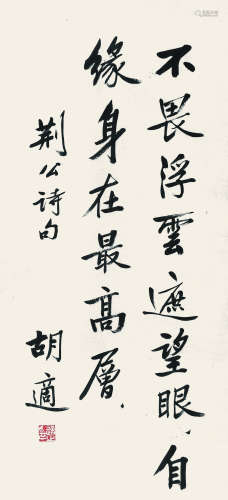 不畏浮雲遮望眼、自
緣身在最高層、
荆公诗句
胡適